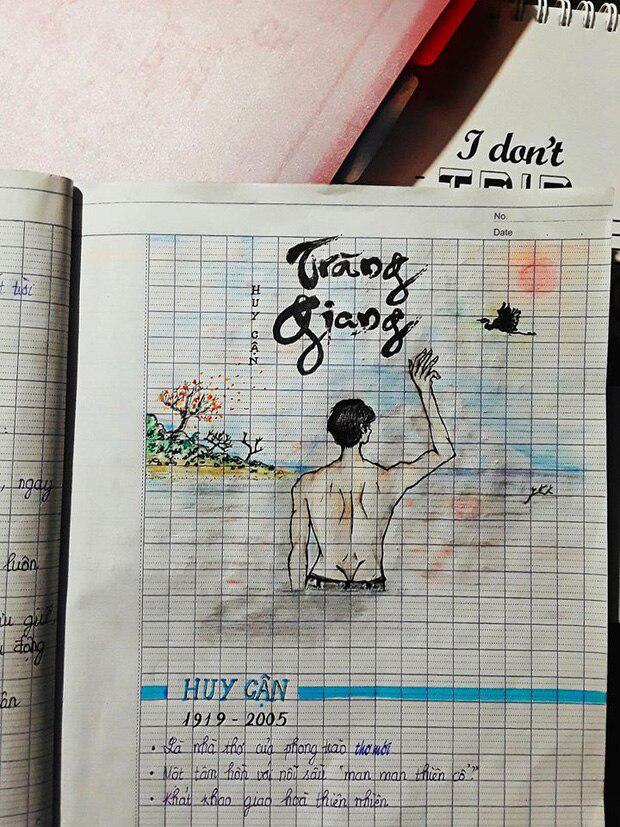 I don't
TRIP
No.
Date
Tràng
Giang
HUY CẬN
HUY CẬN
1919 - 2005
• Là nhà thơ của phong trào thơ mới
• Một tâm hồn với nỗi sầu "man man thiên cổ"
• Khát khao giao hoà thiên nhiên
ngay
luôn
động